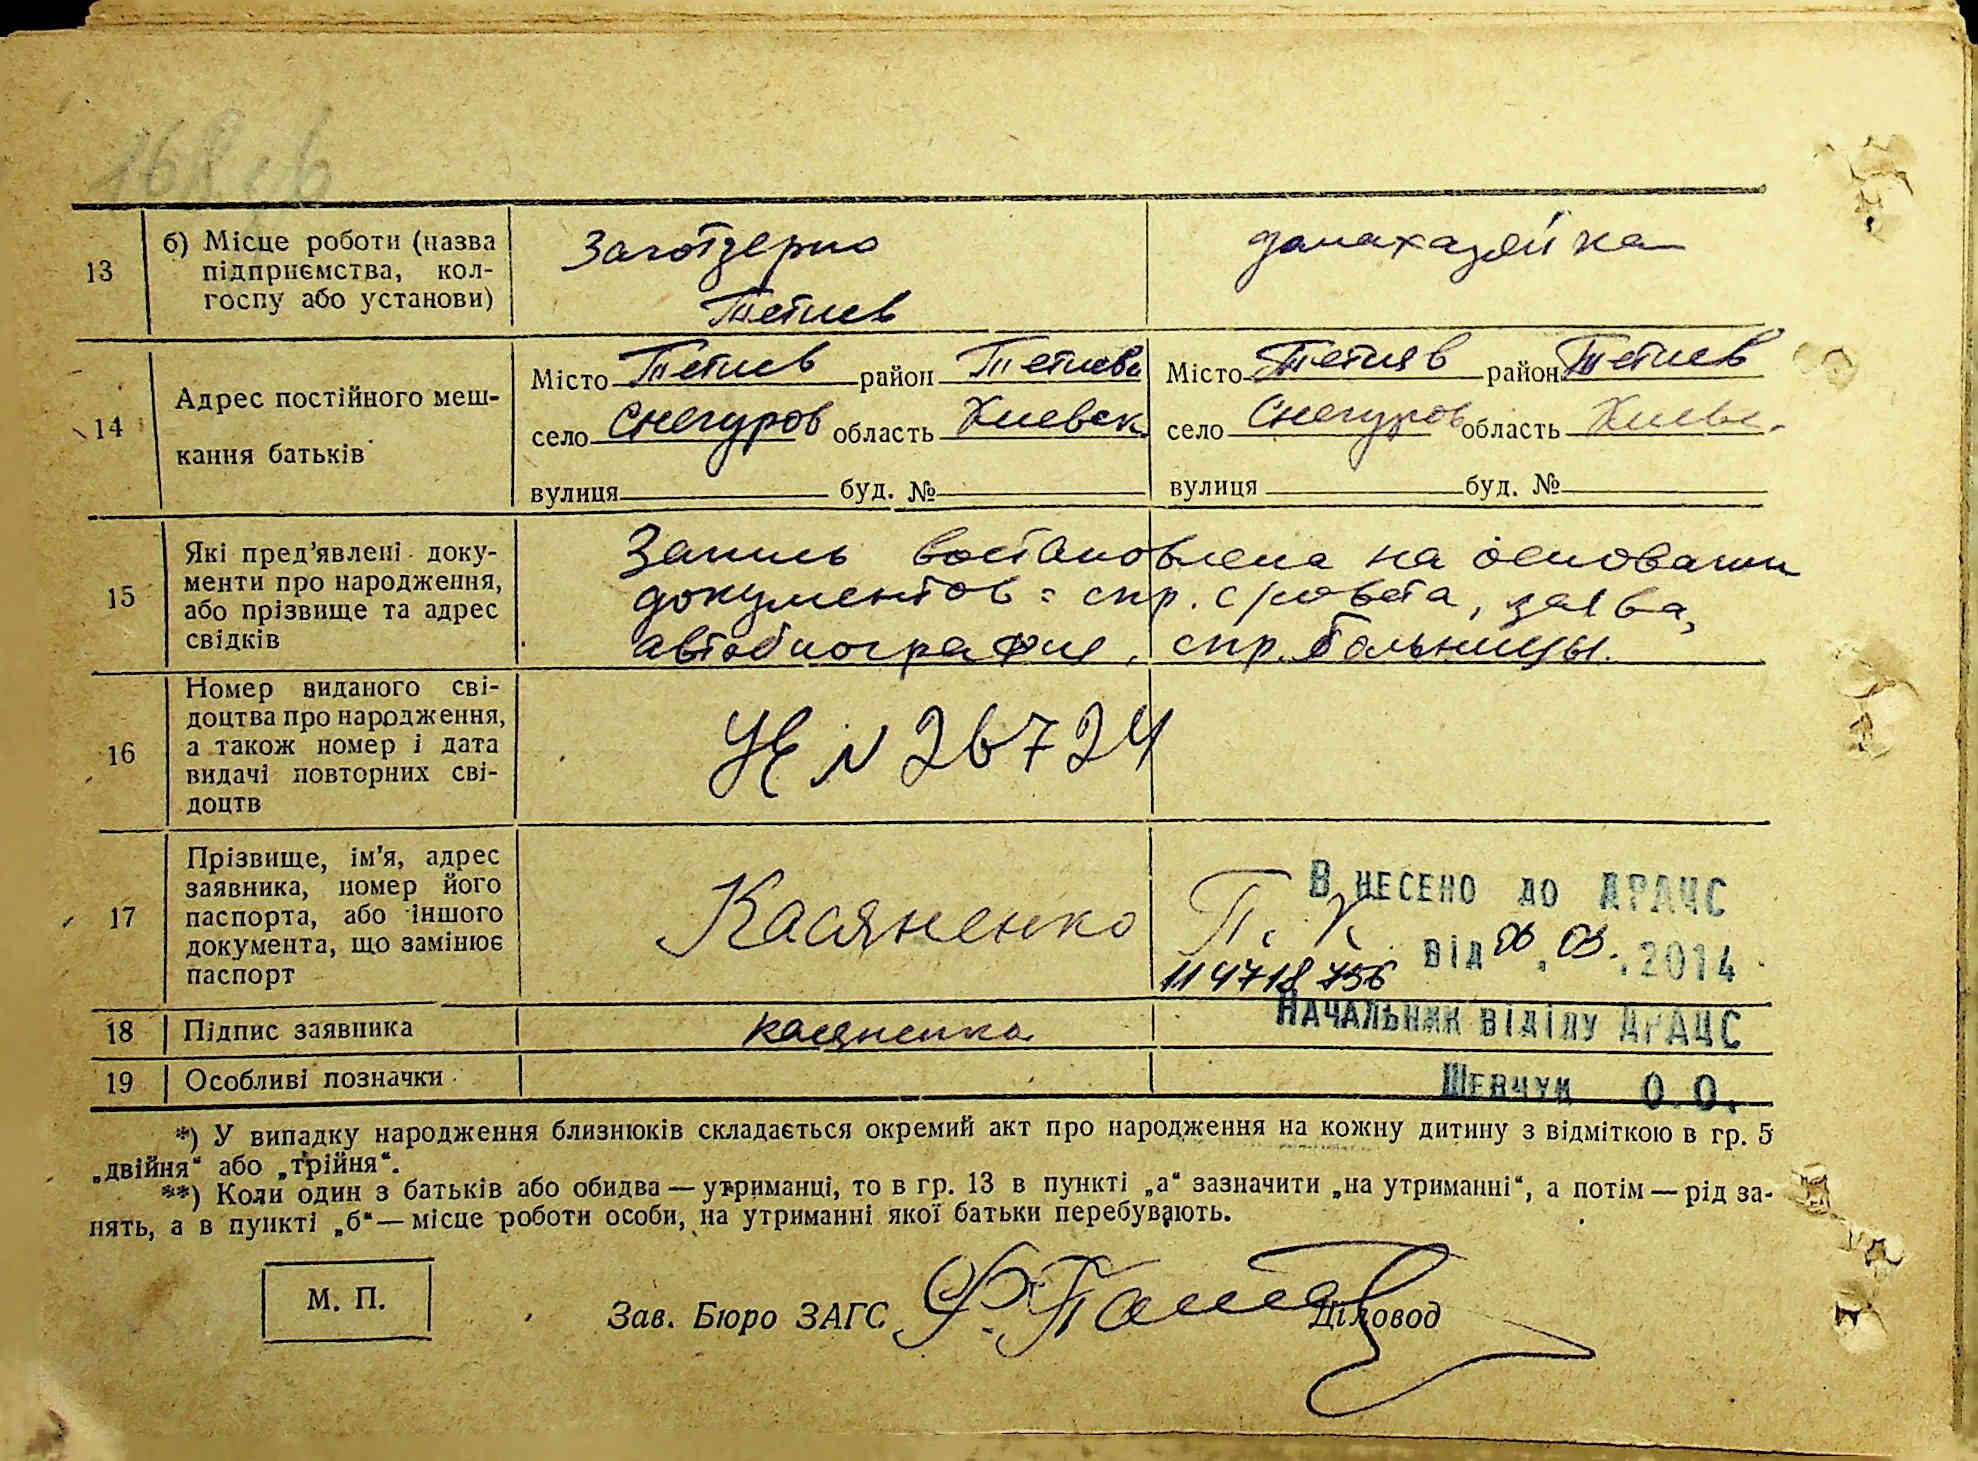 13
б) Місце роботи (назва
підприємства, кол-
госпу або установи)
Заготзерно
Тетиев
домахазяйка
14
Адрес постійного меш-
кання батьків
Місто Тетиев район Тетиевс
село Снегуров область Киевск.
вулиця буд. №
Місто Тетиев район Тетиев
село Снегуров область Киевс.
вулиця буд. №
15
Які пред'явлені доку-
менти про народження,
або прізвище та адрес
свідків
Запись востановлена на основании
документов: спр. с/совета, заява,
автобиография, спр. больницы.
16
Номер виданого сві-
доцтва про народження,
а також номер і дата
видачі повторних сві-
доцтв
N 26724
17
Прізвище, ім'я, адрес
заявника, номер його
паспорта, або іншого
документа, що замінює
паспорт
Касяненко П. К.
114718756
Внесено до ДРАЦС
від 06.03.2014
Начальник відділу ДРАЦС
Шевчук О.О.
18
Підпис заявника
касяненко
19
Особливі позначки
*) У випадку народження близнюків складається окремий акт про народження на кожну дитину з відміткою в гр. 5
„двійня“ або „трійня“.
**) Коли один з батьків або обидва — утриманці, то в гр. 13 в пункті „а“ зазначити „на утриманні“, а потім — рід за-
нять, а в пункті „б“ — місце роботи особи, на утриманні якої батьки перебувають.
М. П.
Зав. Бюро ЗАГС
Діловод